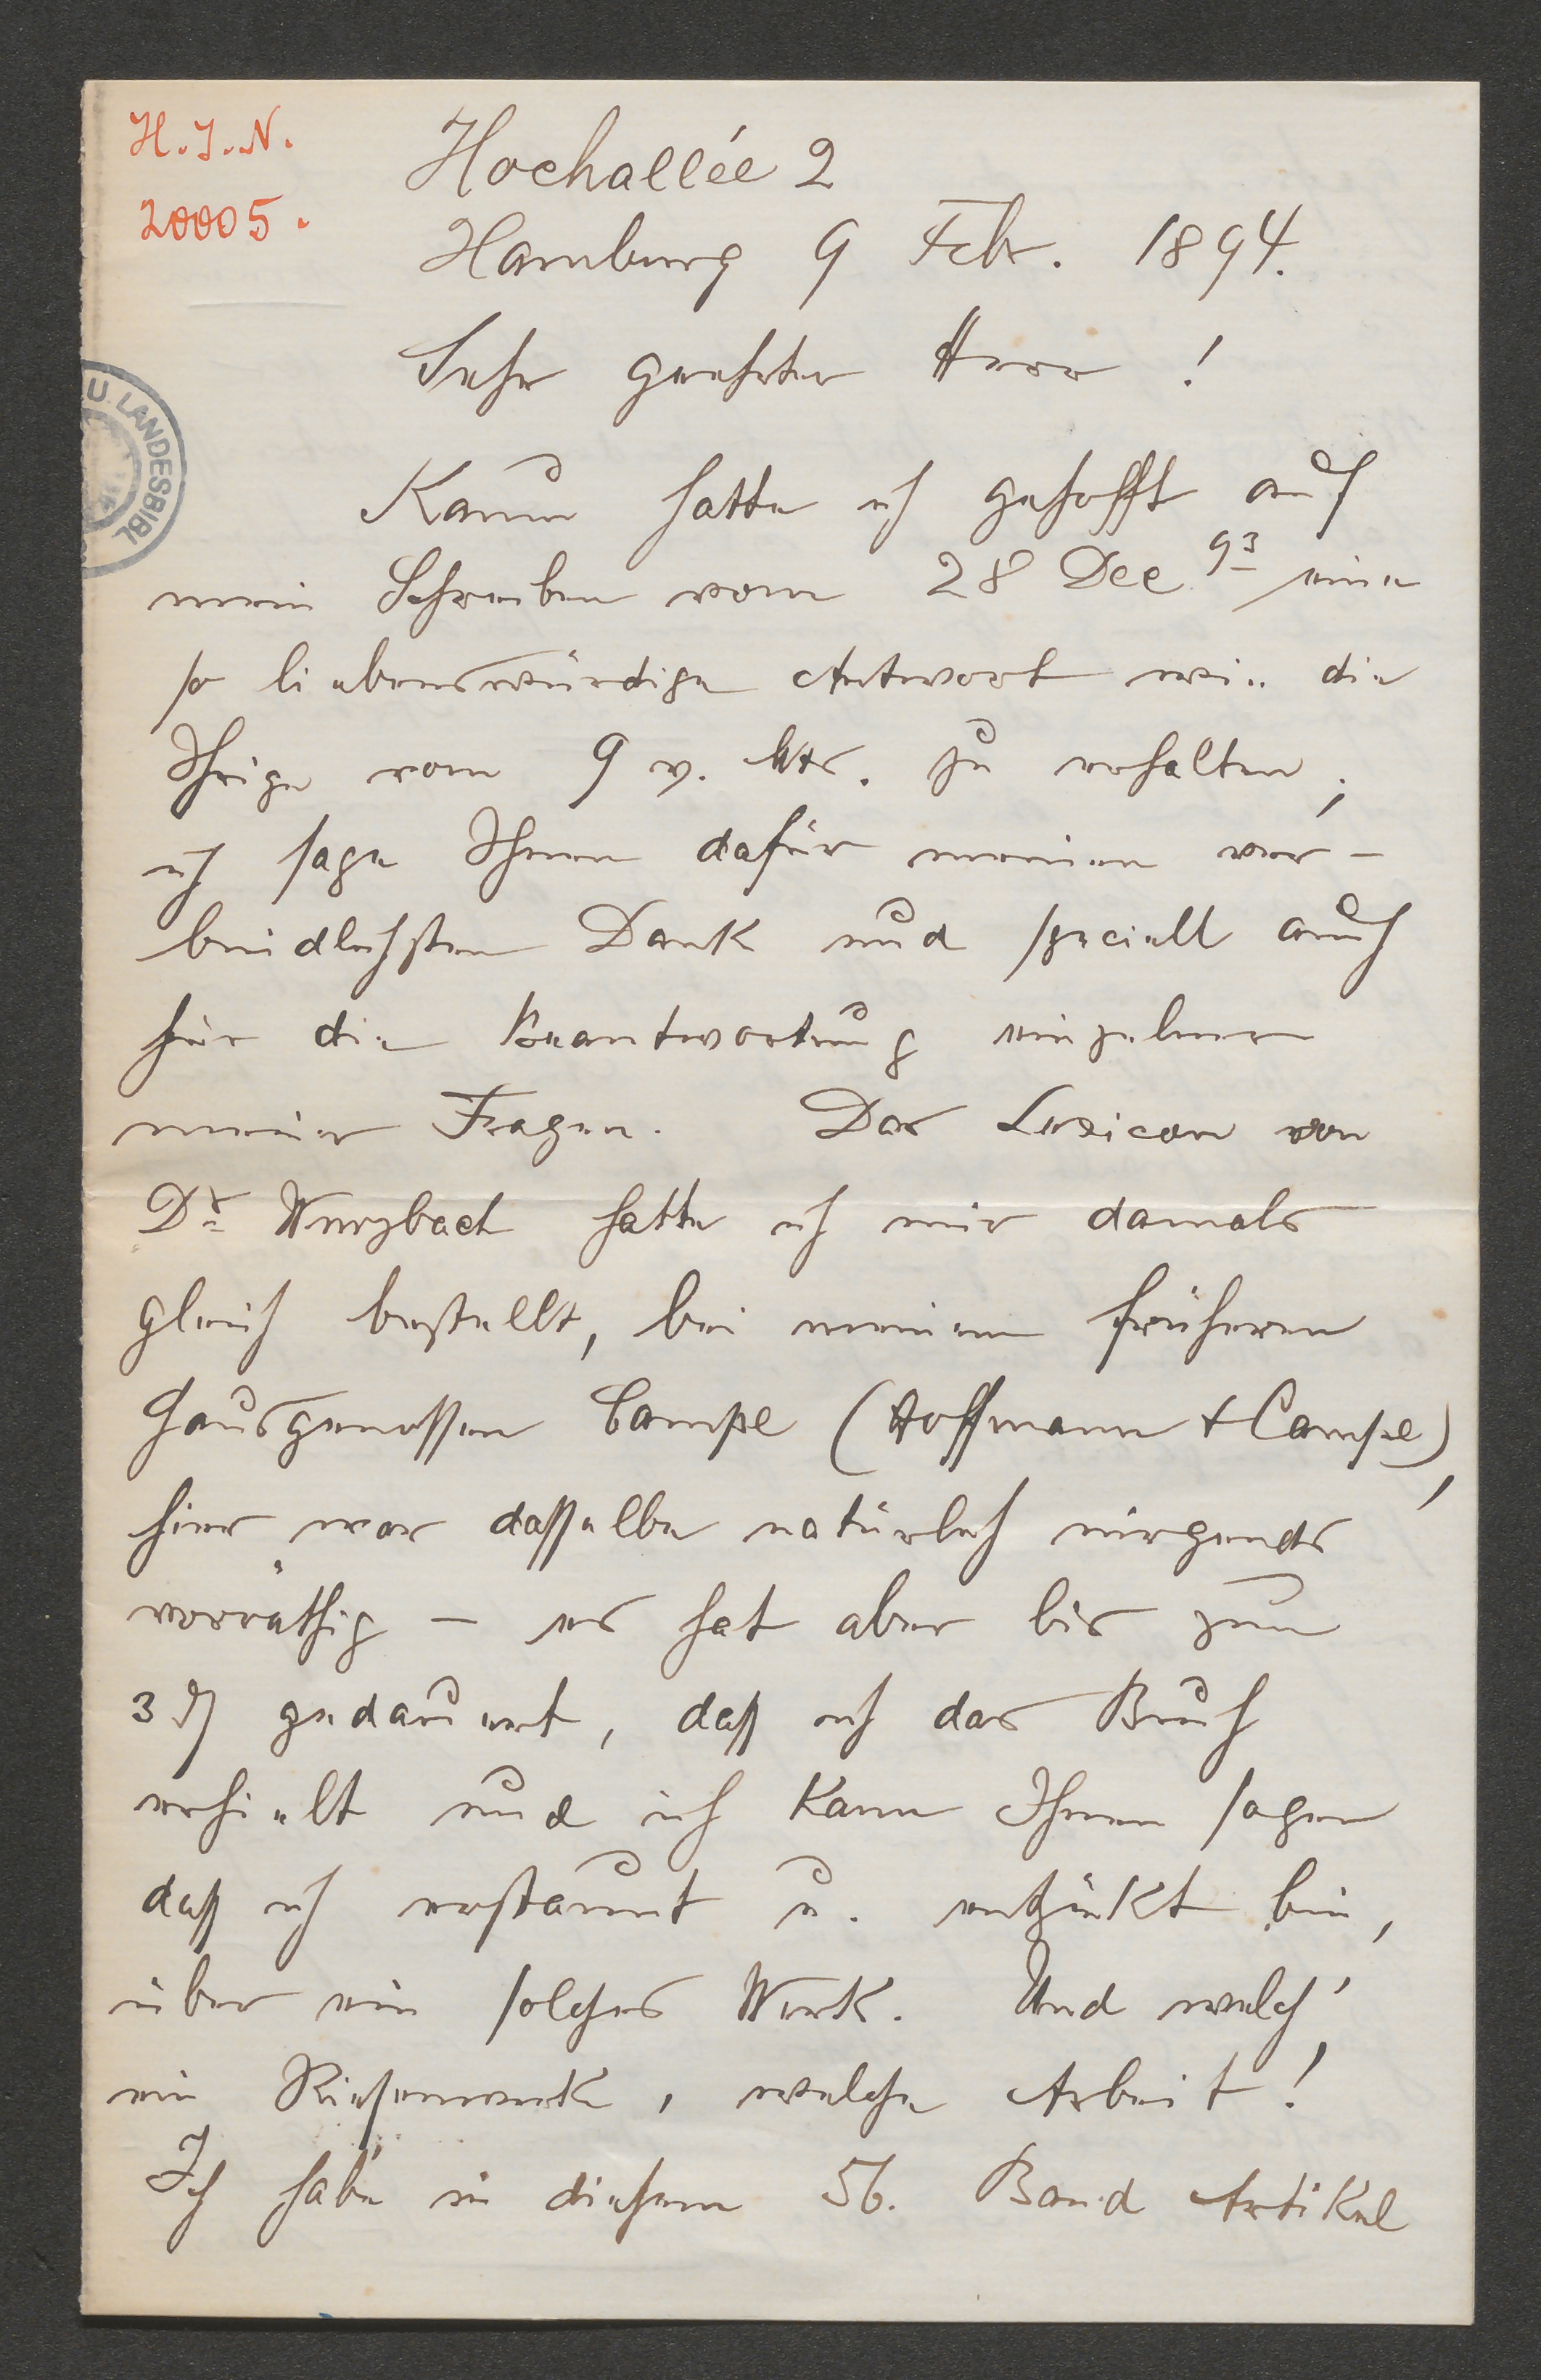 H.I.N.
20005.
Hochallée 2
Hamburg 9 Febr. 1894.
Sehr geehrter Herr!
U. LANDESBIBL
Kaum hatte ich gehofft auf
mein Schreiben vom 28 Dec 93 eine
so liebenswürdige Antwort wie die
Ihrige vom 9 v. Mts. zu erhalten;
ich sage Ihnen dafür meinen ver-
bindlichsten Dank und speciell auch
für die Beantwortung einzelner
meiner Fragen. Das Lexicon von
Dr Wurzbach hatte ich mir damals
gleich bestellt, bei meinem früheren
Hausgenossen Campe (Hoffmann & Campe),
hier war dasselbe natürlich nirgends
vorräthig – es hat aber bis zum
3 gedauert, daß ich das Buch
erhielt und ich kann Ihnen sagen
daß ich erstaunt u. entzückt bin,
über ein solches Werk. Und welch'
ein Riesenwerk, welche Arbeit!
Ich habe in diesem 56. Band Artikel